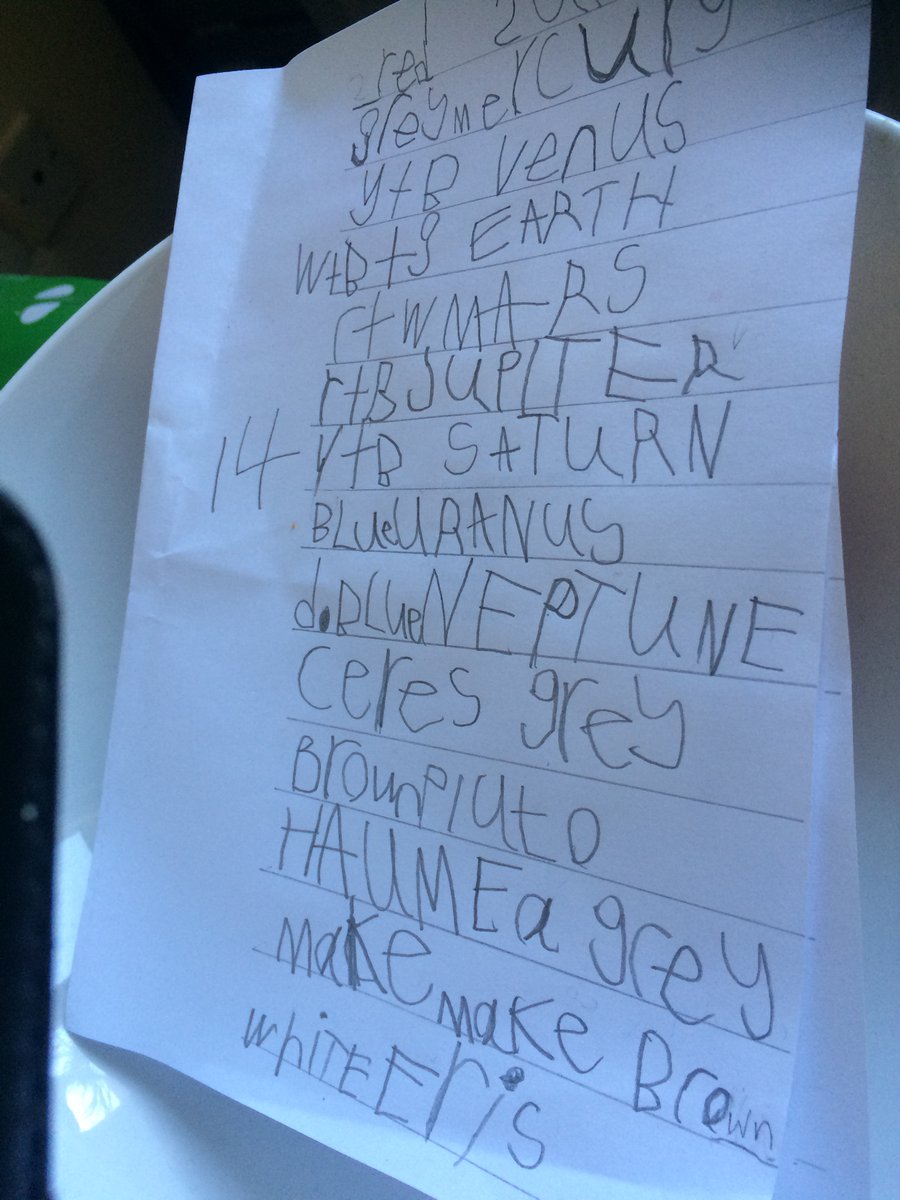 red
grey mercury
y+B venus
W+B+g EARTH
r+W MARS
r+B JUPITER
14 Y+B SATURN
BLue URANUS
d.BLue NEPTUNE
Ceres grey
Brown Pluto
HAUMEa grey
make make Brown
whiTE Eris